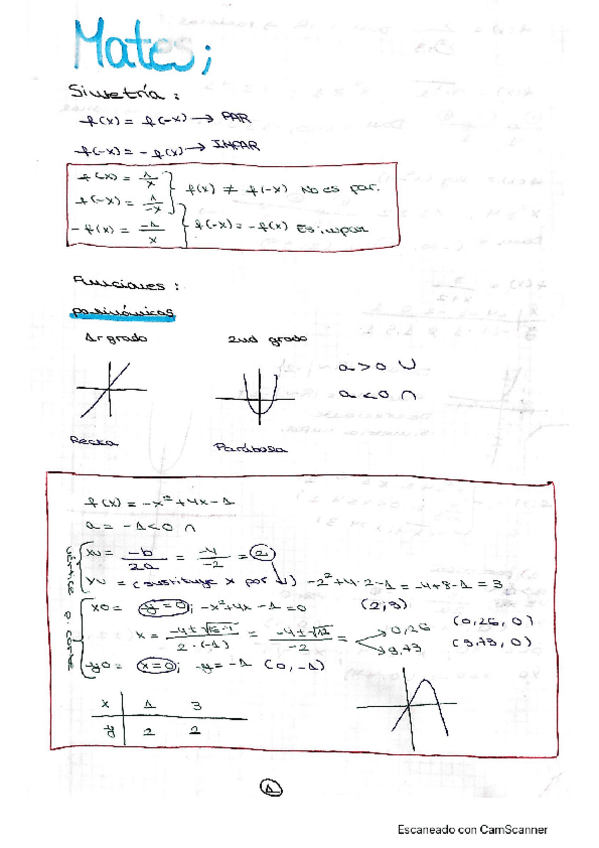 Mates;
Simetría:
f(x) = f(-x) → PAR
f(-x) = -f(x) → IMPAR
f(x) = 1/x
f(x) ≠ f(-x) No es par.
f(-x) = 1/-x
-f(x) = -1/x
f(-x) = -f(x) Es impar
Funciones:
polinómicas
1r grado 2nd grado
a>0 ∪
a<0 ∩
Recta Parábola
f(x) = -x²+4x-1
a = -1<0 ∩
vértice
xv = -b/2a = -4/-2 = 2
yv = (sustituye x por ↓) -2²+4·2-1 = -4+8-1 = 3
(2,3)
p. corte
x0 = y=0; -x²+4x-1=0
x = -4±√16-4 / 2·(-1) = -4±√12 / -2 = 0,26 (0,26, 0)
3,73 (3,73, 0)
y0 = x=0; y=-1 (0,-1)
x 1 3
y 2 2
1
Escaneado con CamScanner